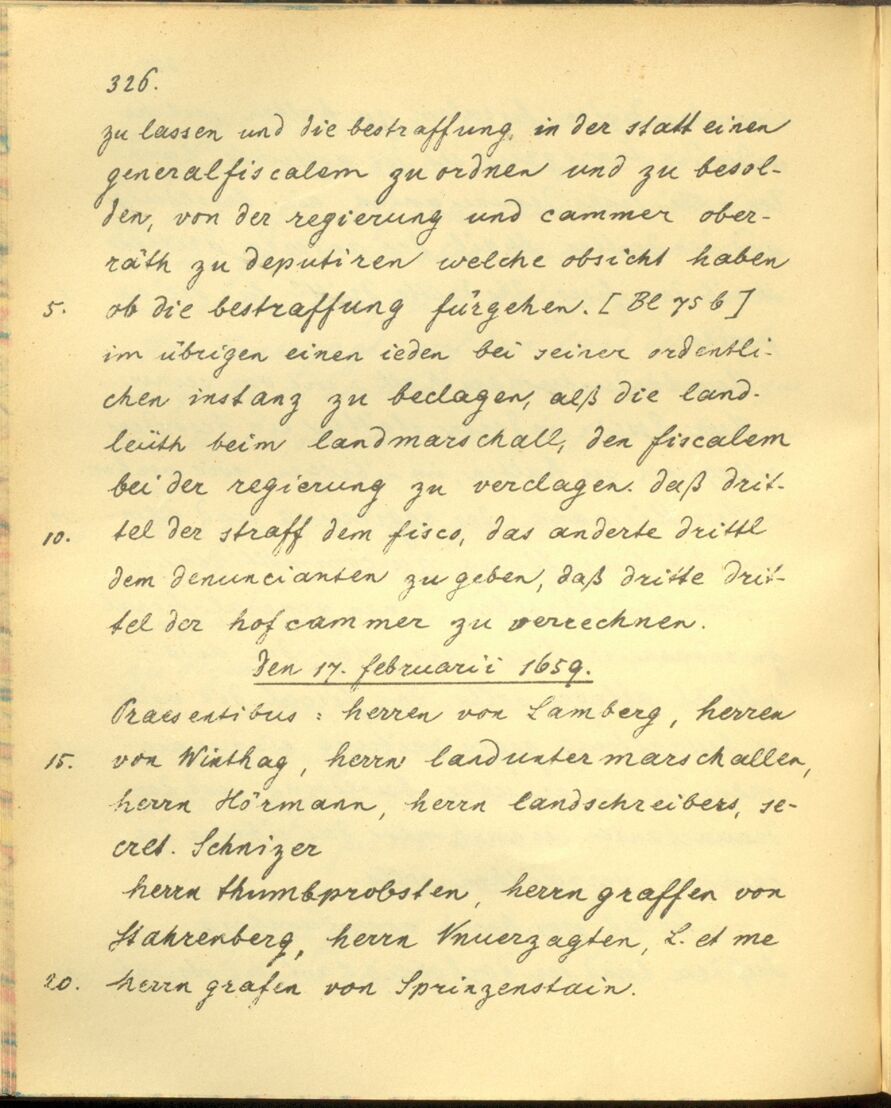 326.
zu lassen und die bestraffung, in der statt einen
generalfiscalem zu ordnen und zu besol-
den, von der regierung und cammer ober-
räth zu deputiren welche obsicht haben
5. ob die bestraffung fürgehen. [Bl 75 b]
im übrigen einen ieden bei seiner ordentli-
chen instanz zu beclagen, alß die land-
leüth beim landmarschall, den fiscalem
bei der regierung zu verclagen. daß drit-
10. tel der straff dem fisco, das anderte drittl
dem denuncianten zu geben, daß dritte drit-
tel der hofcammer zu verrechnen.
Den 17. februarii 1659.
Praesentibus: herren von Lamberg, herren
15. von Winthag, herrn landuntermarschallen,
herrn Hörmann, herrn landschreibers, se-
cret. Schnizer
herrn thumbprobsten, herrn graffen von
Stahrenberg, herrn Vnuerzagten, L. et me
20. herrn grafen von Sprinzenstain.